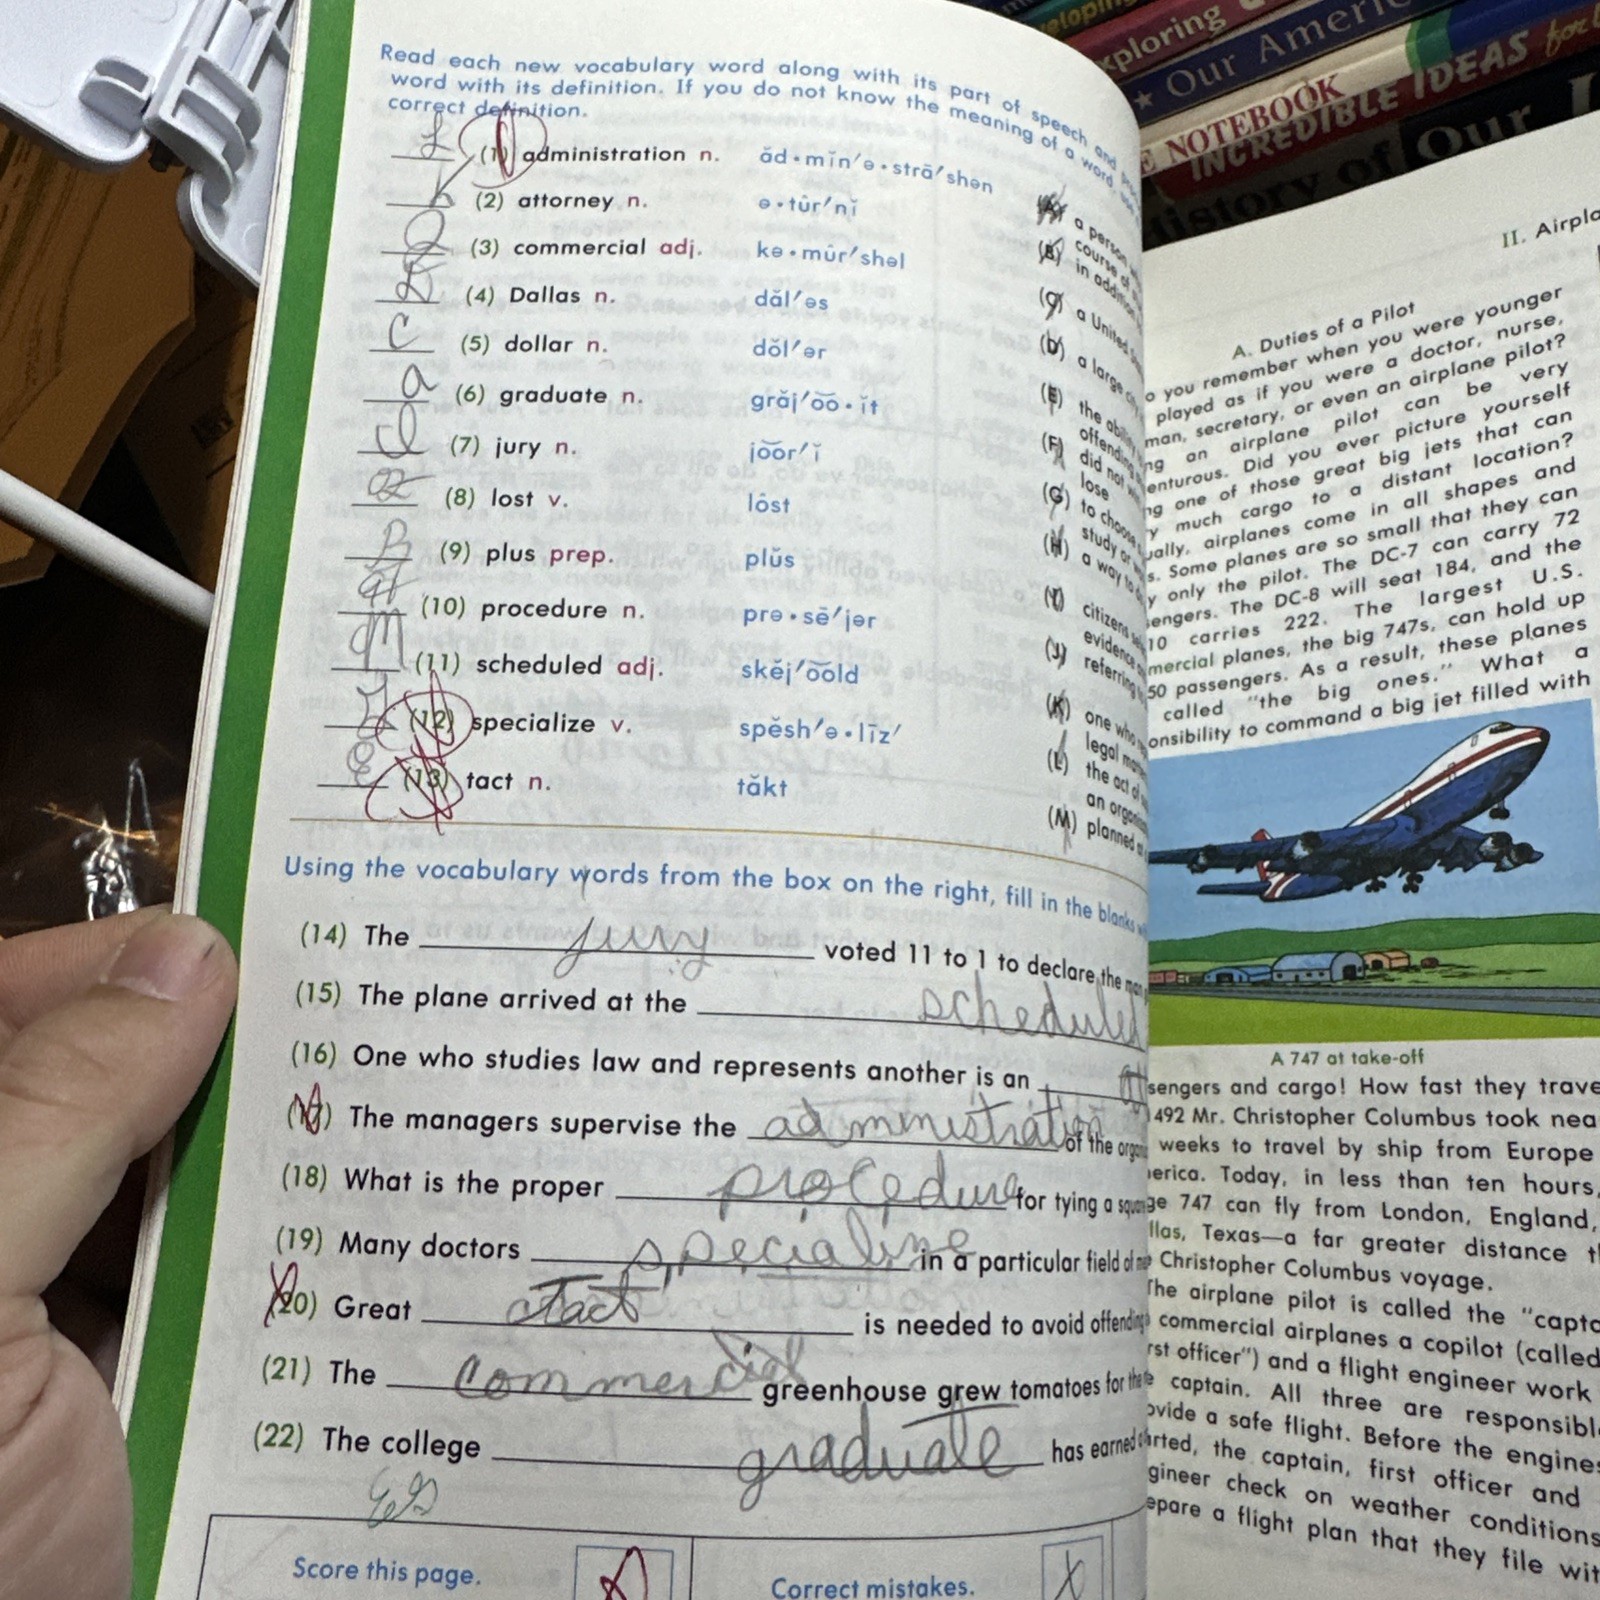 Developing
Exploring
Our Ameri
NOTEBOOK
INCREDIBLE IDEAS for
History of Our
Read each new vocabulary word along with its part of speech and
word with its definition. If you do not know the meaning of a word,
correct definition.
L (1) administration n. ăd·mĭn′ə·strā′shən
K (2) attorney n. ə·tûr′nĭ
(3) commercial adj. kə·mûr′shəl
D (4) Dallas n. dăl′əs
C (5) dollar n. dŏl′ər
a (6) graduate n. grăj′o͞o·ĭt
(7) jury n. jo͝or′ĭ
(8) lost v. lôst
B (9) plus prep. plŭs
H (10) procedure n. prə·sē′jər
M (11) scheduled adj. skĕj′o͝old
(12) specialize v. spĕsh′ə·līz′
E (13) tact n. tăkt
(A) a person
(B) course of
in addition
(C) a United
(D) a large city
(E) the ability
offending
(F) did not
lose
(G) to choose
study or
(H) a way to
(I) citizens
evidence
(J) referring
(K) one who
legal matters
(L) the act of
an organization
(M) planned
Using the vocabulary words from the box on the right, fill in the blanks
(14) The jury voted 11 to 1 to declare the man
(15) The plane arrived at the scheduled
(16) One who studies law and represents another is an
(17) The managers supervise the administration of the
(18) What is the proper procedure for tying a square
(19) Many doctors specialize in a particular field of
(20) Great tact is needed to avoid offending
(21) The commercial greenhouse grew tomatoes for the
(22) The college graduate has earned
Score this page.
Correct mistakes. X
II. Airpla
A. Duties of a Pilot
o you remember when you were younger
played as if you were a doctor, nurse,
man, secretary, or even an airplane pilot?
ng an airplane pilot can be very
enturous. Did you ever picture yourself
ng one of those great big jets that can
y much cargo to a distant location?
ually, airplanes come in all shapes and
s. Some planes are so small that they can
y only the pilot. The DC-7 can carry 72
sengers. The DC-8 will seat 184, and the
10 carries 222. The largest U.S.
mercial planes, the big 747s, can hold up
50 passengers. As a result, these planes
called "the big ones." What a
onsibility to command a big jet filled with
A 747 at take-off
sengers and cargo! How fast they trave
1492 Mr. Christopher Columbus took nea
weeks to travel by ship from Europe
erica. Today, in less than ten hours,
ge 747 can fly from London, England,
llas, Texas—a far greater distance t
Christopher Columbus voyage.
The airplane pilot is called the "capta
commercial airplanes a copilot (called
rst officer") and a flight engineer work
captain. All three are responsibl
ovide a safe flight. Before the engines
arted, the captain, first officer and
gineer check on weather conditions
epare a flight plan that they file wit